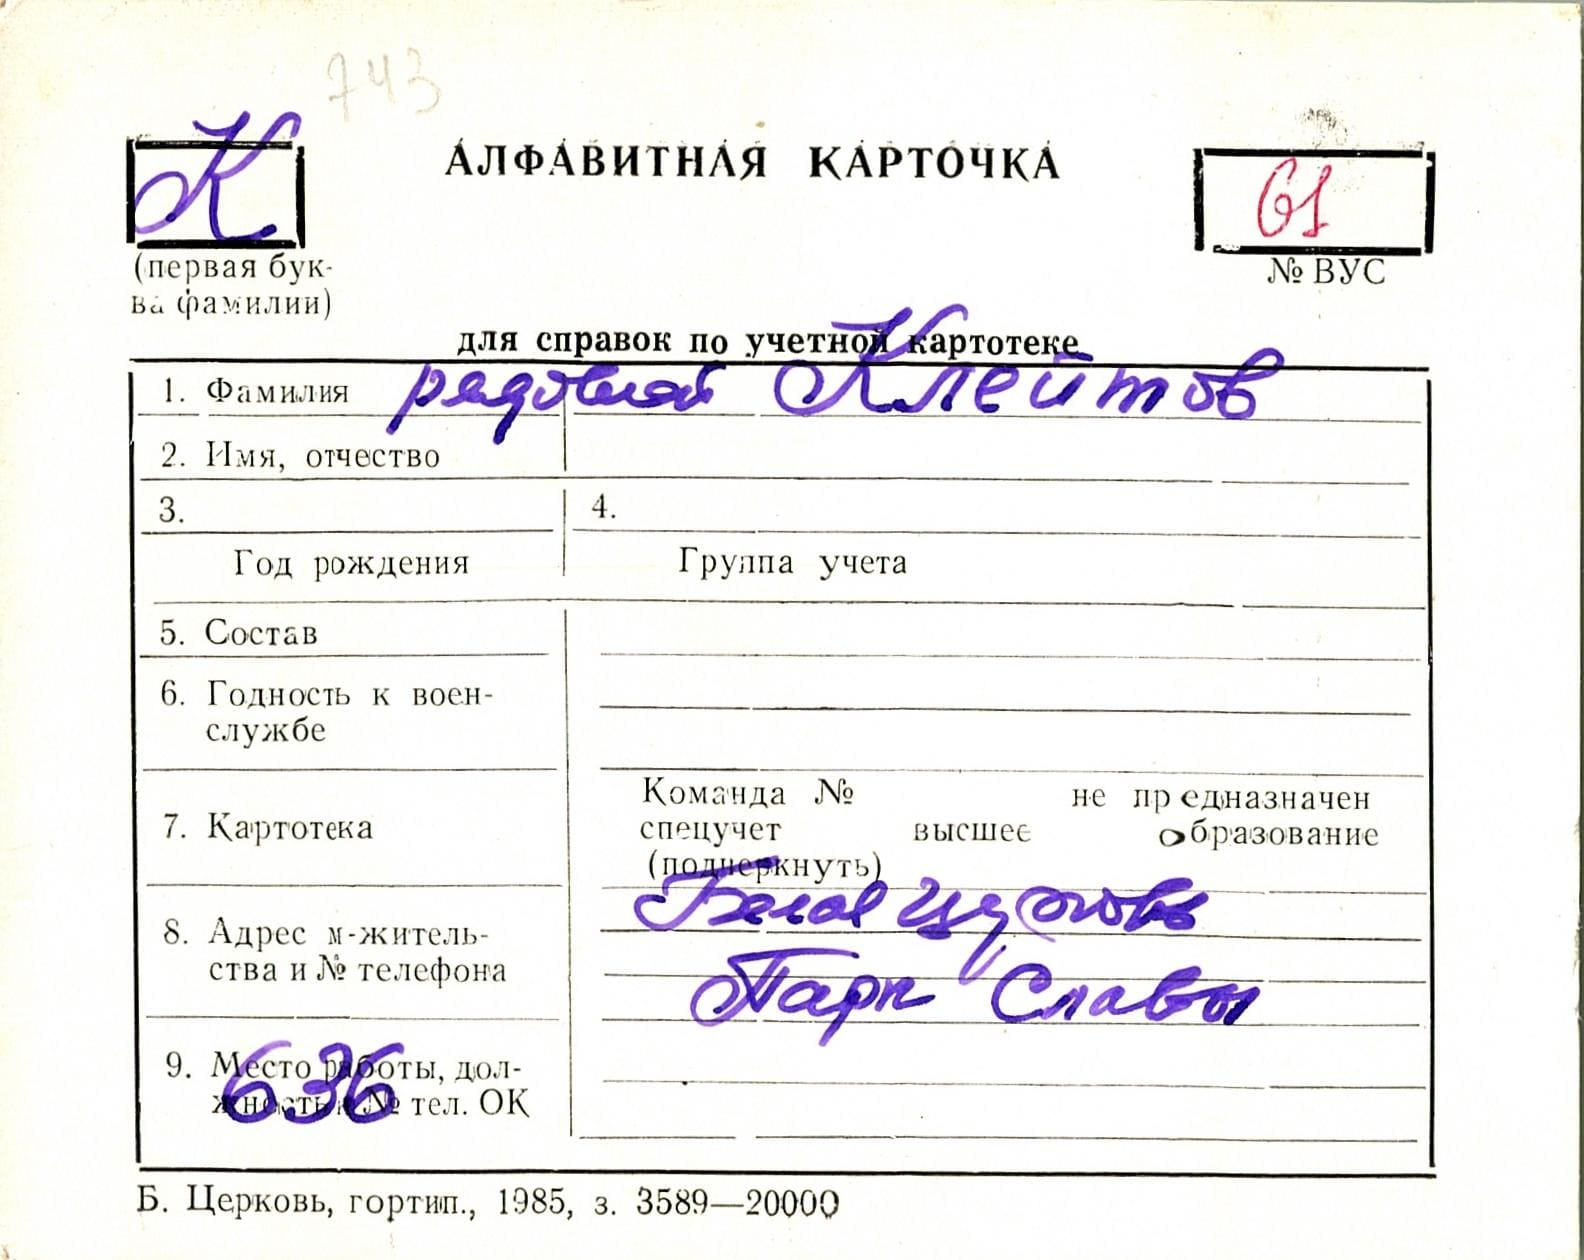 743
К
АЛФАВИТНАЯ КАРТОЧКА
61
(первая бук-
ва фамилии)
№ ВУС
для справок по учетной картотеке
1. Фамилия рядовой Клейтов
2. Имя, отчество
3. 4.
Год рождения Группа учета
5. Состав
6. Годность к воен-
службе
7. Картотека
Команда № не предназначен
спецучет высшее образование
(подчеркнуть)
8. Адрес м-житель-
ства и № телефона
Белая Церковь
Парк Славы
9. Место работы, дол-
жность и № тел. ОК
636
Б. Церковь, гортип., 1985, з. 3589—20000